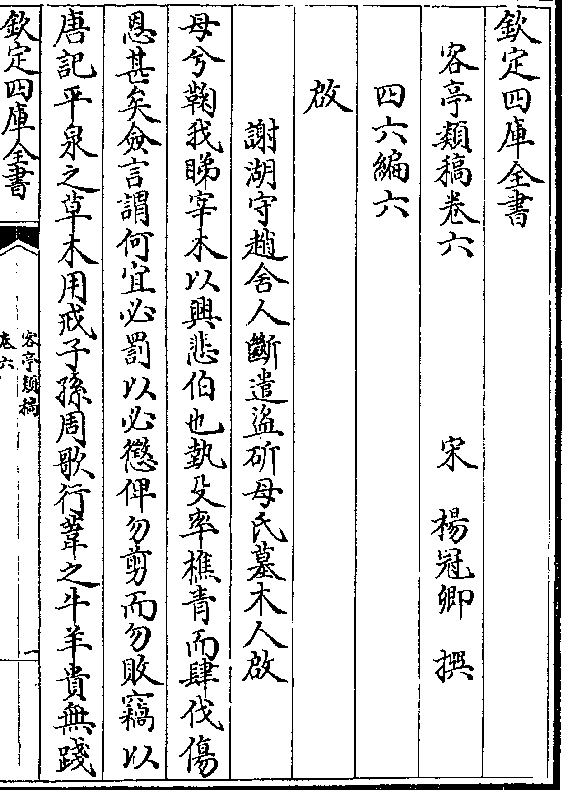 欽定四庫全書
客亭類稿卷六
宋 楊冠卿 撰
四六編六
啟
謝湖守趙舍人斷遣盜斫母氏墓木人啟
母兮鞠我睇宰木以興悲伯也執殳率樵青而肆伐傷
恩甚矣僉言謂何宜必罰以必懲俾勿剪而勿敗竊以
唐記平泉之草木用戒子孫周歌行葦之牛羊貴無踐
欽定四庫全書
客亭類稿
卷六
一